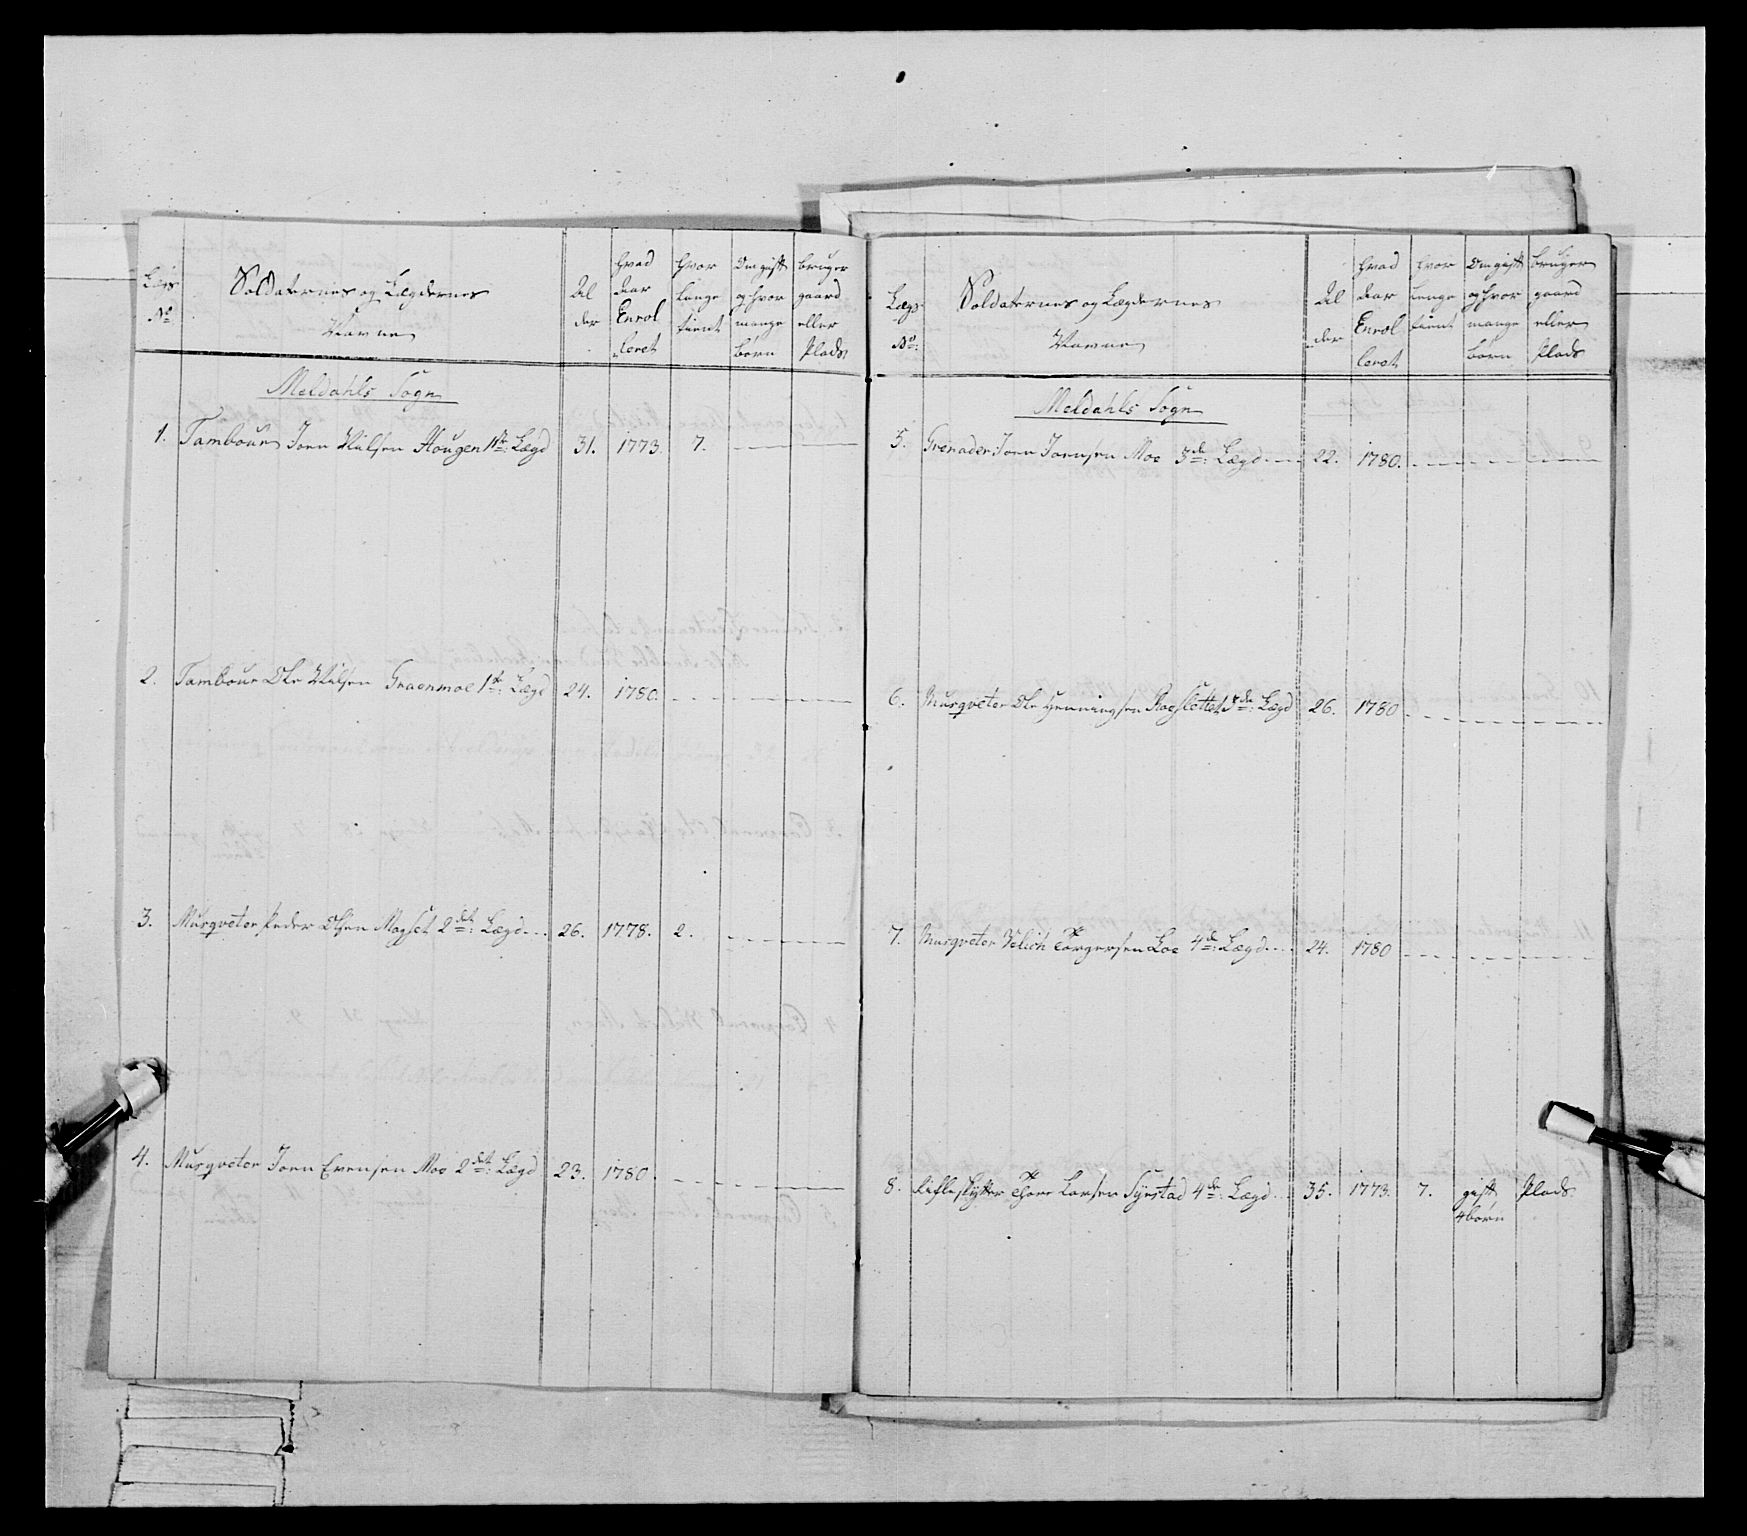 Lægs No
Soldaternes og Lægdernes Navne
Al der
hvad Aar Enrol leret
hvor lenge tient
Om gift og hvor mange børn
bruger gaard eller Plads
Meldahls Sogn
1. Tambour Joen Nilsen Hougen 1te Lægd 31. 1773. 7.
2. Tambour Ole Nilsen Graenmoe 1te Lægd 24. 1780.
3. Musqveter Peder Olsen Magset 2det Lægd 26. 1778. 2.
4. Musqveter Joen Evensen Moe 2det Lægd 23. 1780.
Lægs No
Soldaternes og Lægdernes Navne
Al der
hvad Aar Enrol leret
hvor lenge tient
Om gift og hvor mange børn
bruger gaard eller Plads
Meldahls Sogn
5. Grenader Joen Joensen Moe 3de Lægd 22. 1780.
6. Musqveter Ole Henningsen 3de Lægd 26. 1780
7. Musqveter Torgersen Loe 4de Lægd 24. 1780
8. Thore Larsen Syrstad 4de Lægd 35. 1773. 7. gift Plads
4 børn